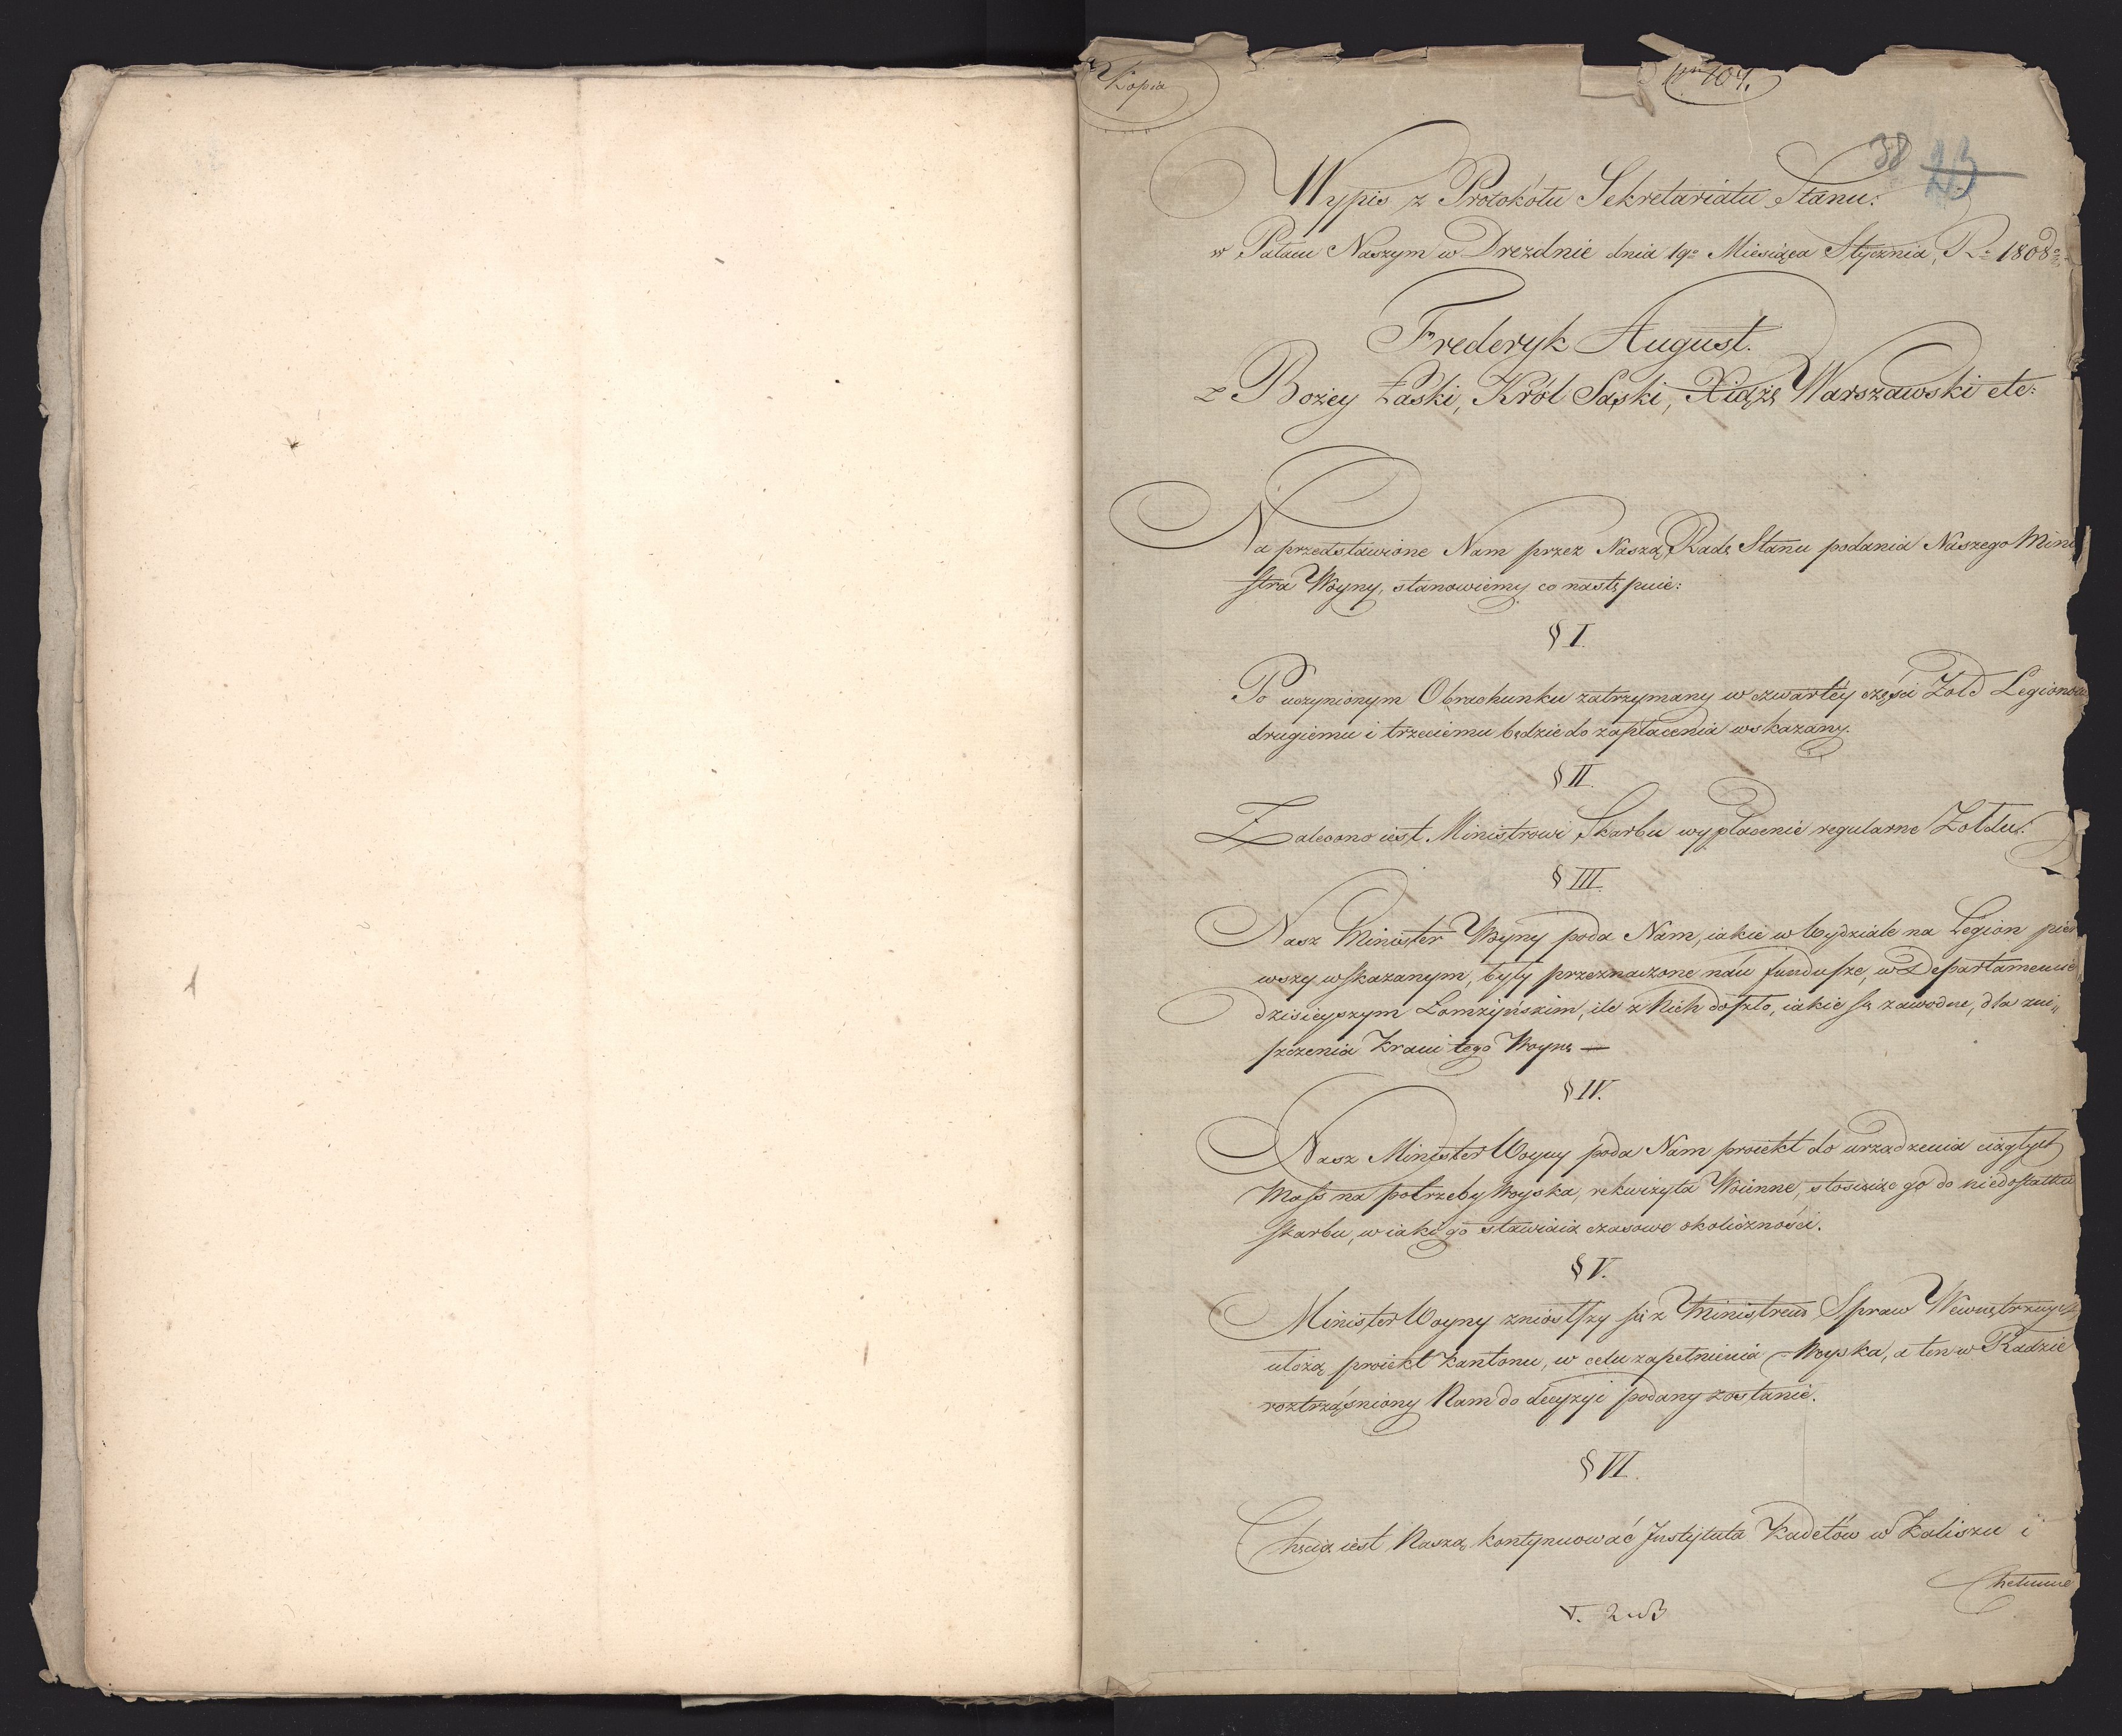 Kopia
Nro 107.
38 23
Wypis z Protokółu Sekretariatu Stanu:
w Pałacu Naszym w Dreznie dnia 19o Miesiąca Stycznia, R: 1808
Frederyk August.
z Bożey Łaski, Król Saski, Xiążę Warszawski etc:
Na przedstawione Nam przez Naszą Radę Stanu podania Naszego Mini
stra Woyny, stanowiemy co nastę puie:
§ I.
Po uczynionym Obrachunku zatrzymany w czwartéy części Żołd Legionowi
drugiemu i trzeciemu będzie do zapłacenia wskazany.
§ II.
Zalecono iest Ministrowi Skarbu wypłacenie regularne Żołdu.
§ III.
Nasz Minister Woyny poda Nam, iakie w Wydziale na Legion pier
wszy wskazanym, były przeznaczone nań fundusze, w Departamencie
dzisieyszym Łomżyńskim, ile z Nich doszło, iakie są zawodne, dla zni„
szczenia Kraiu tego Woyną —
§ IV.
Nasz Minister Woyny poda Nam proiekt do urządzenia ciągłych
Mass na potrzeby Woyska, rekwizyta Woienne, stosuiąc go do niedostatku
Skarbu, w iaki go stawiaią czasowe okoliczności.
§ V.
Minister Woyny zniosłszy się z Ministrem Spraw Wewnętrznych
ułożą proiekt Kantonu, w celu zapełnienia Woyska, a ten w Radzie
roztrząśniony Nam do decyzyi podany zostanie.
§ VI.
Chęcią iest Naszą kontynuować Instytuta Kadetów w Kaliszu i
Chełmnie